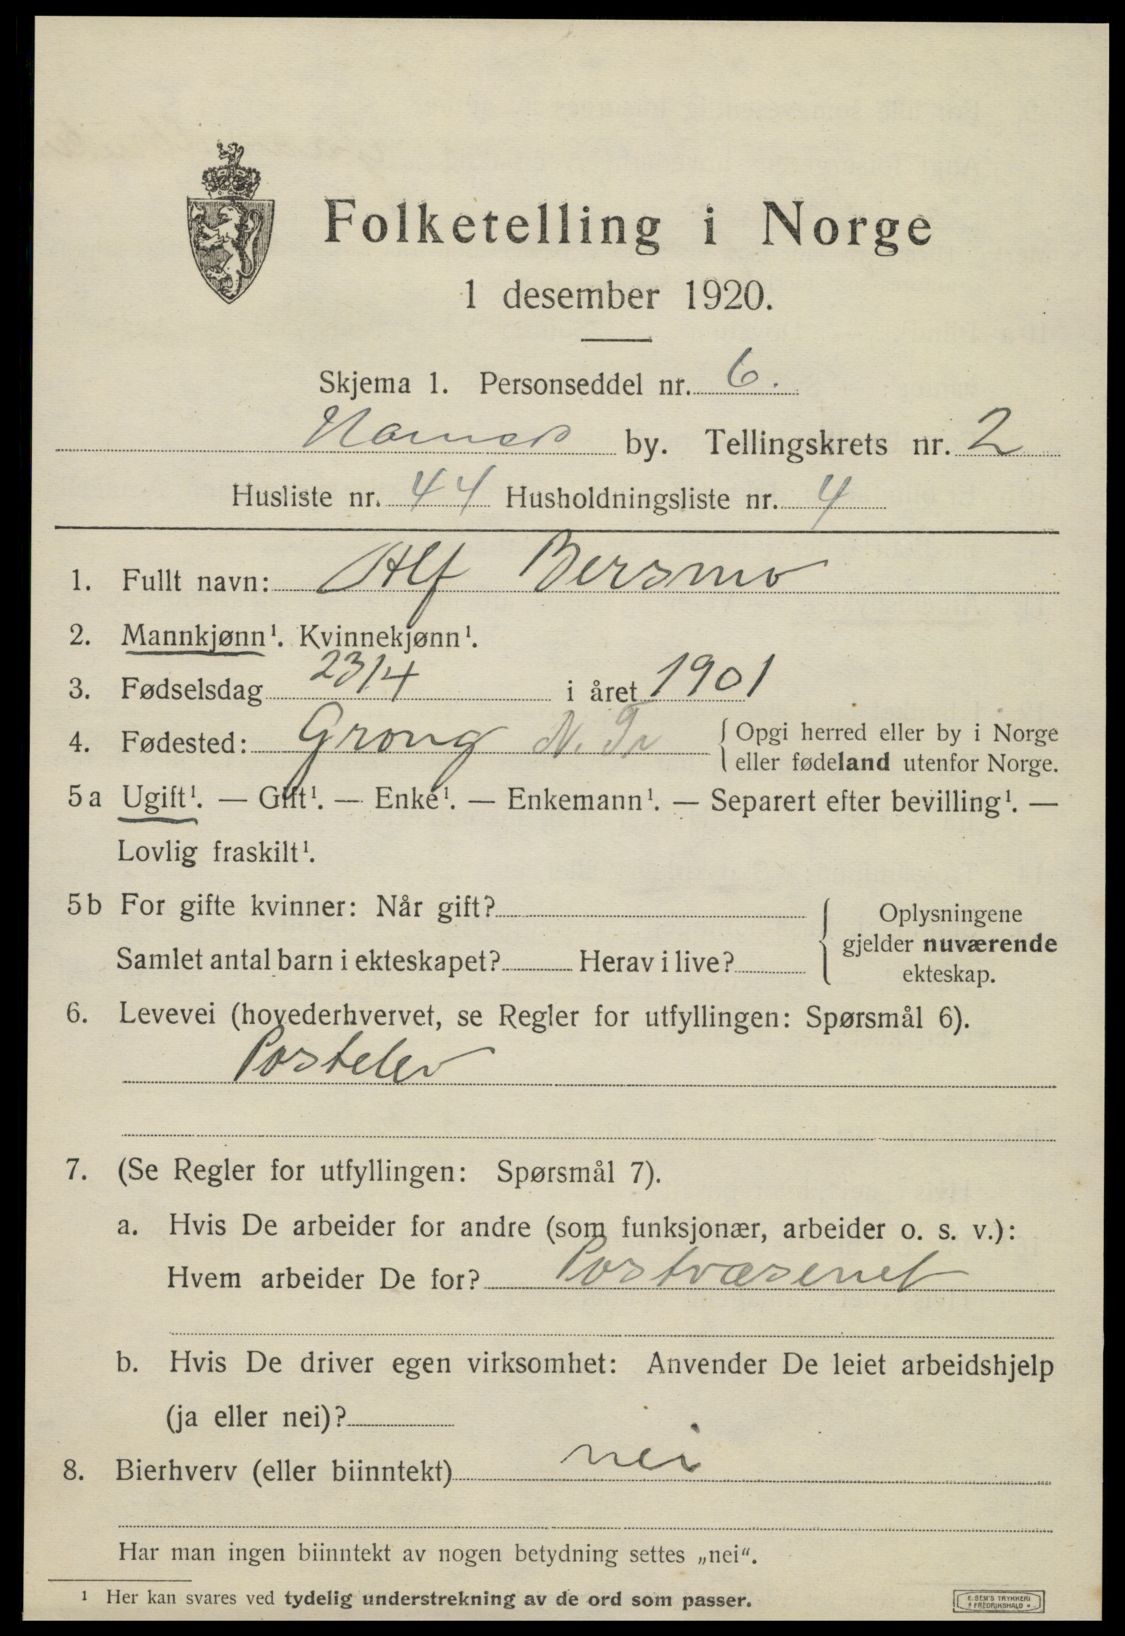 Folketelling i Norge
1 desember 1920.
Skjema 1. Personseddel nr. 6.
Namsos by. Tellingskrets nr. 2
Husliste nr. 44 Husholdningsliste nr. 4
1. Fullt navn: Alf Bersmo
2. Mannkjønn¹. Kvinnekjønn¹.
3. Fødselsdag 23/4 i året 1901
4. Fødested: Grong N. Tr { Opgi herred eller by i Norge
eller fødeland utenfor Norge.
5a Ugift¹. — Gift¹. — Enke¹. — Enkemann¹. — Separert efter bevilling¹. —
Lovlig fraskilt¹.
5b For gifte kvinner: Når gift?
Samlet antal barn i ekteskapet? Herav i live?
{ Oplysningene
gjelder nuværende
ekteskap.
6. Levevei (hovederhvervet, se Regler for utfyllingen: Spørsmål 6).
Postelev
7. (Se Regler for utfyllingen: Spørsmål 7).
a. Hvis De arbeider for andre (som funksjonær, arbeider o. s. v.):
Hvem arbeider De for? Postvæsenet
b. Hvis De driver egen virksomhet: Anvender De leiet arbeidshjelp
(ja eller nei)?
8. Bierhverv (eller biinntekt) nei
Har man ingen biinntekt av nogen betydning settes „nei“.
¹ Her kan svares ved tydelig understrekning av de ord som passer.
E. SEM'S TRYKKERI
FREDRIKSHALD